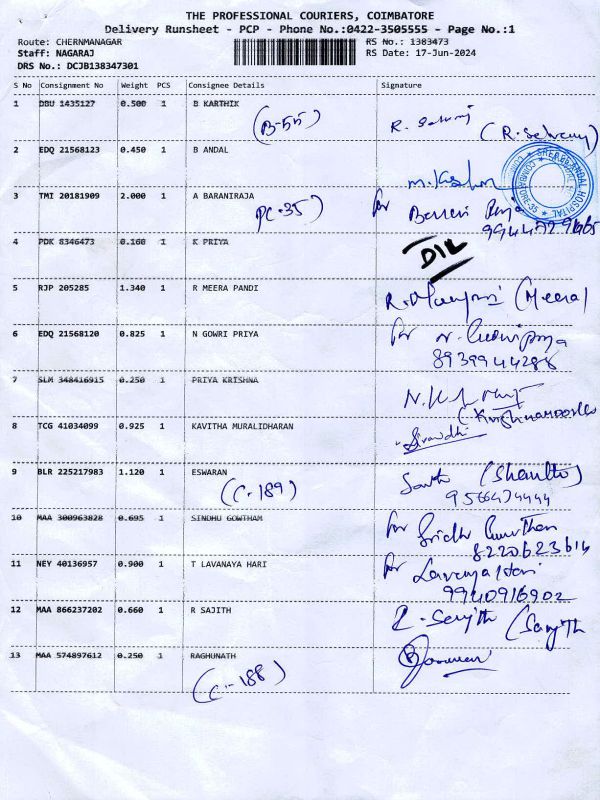 THE PROFESSIONAL COURIERS, COIMBATORE
Delivery Runsheet - PCP - Phone No.:0422-3505555 - Page No.:1
Route: CHERNMANAGAR
Staff: NAGARAJ
DRS No.: DCJB138347301
RS No.: 1383473
RS Date: 17-Jun-2024
S No Consignment No Weight PCS Consignee Details Signature
1 DBU 1435127 0.500 1 B KARTHIK
(B-55) R. Selvaraj (R. Selvaraj)
2 EDQ 21568123 0.450 1 B ANDAL
SREE HOSPITAL
3 TMI 20181909 2.000 1 A BARANIRAJA
PC-35) for
4 PDK 8346473 0.160 1 K PRIYA D1L
5 RJP 205285 1.340 1 R MEERA PANDI
(Meera)
6 EDQ 21568120 0.825 1 N GOWRI PRIYA for N.
8939944288
7 SLM 348416915 0.250 1 PRIYA KRISHNA
8 TCG 41034099 0.925 1 KAVITHA MURALIDHARAN
9 BLR 225217983 1.120 1 ESWARAN
(C-189)
10 MAA 300963828 0.695 1 SINDHU GOWTHAM for
8220623614
11 NEY 40136957 0.900 1 T LAVANAYA HARI for Lavanya Hari
9940916902
12 MAA 866237202 0.660 1 R SAJITH
13 MAA 574897612 0.250 1 RAGHUNATH
(C-188)